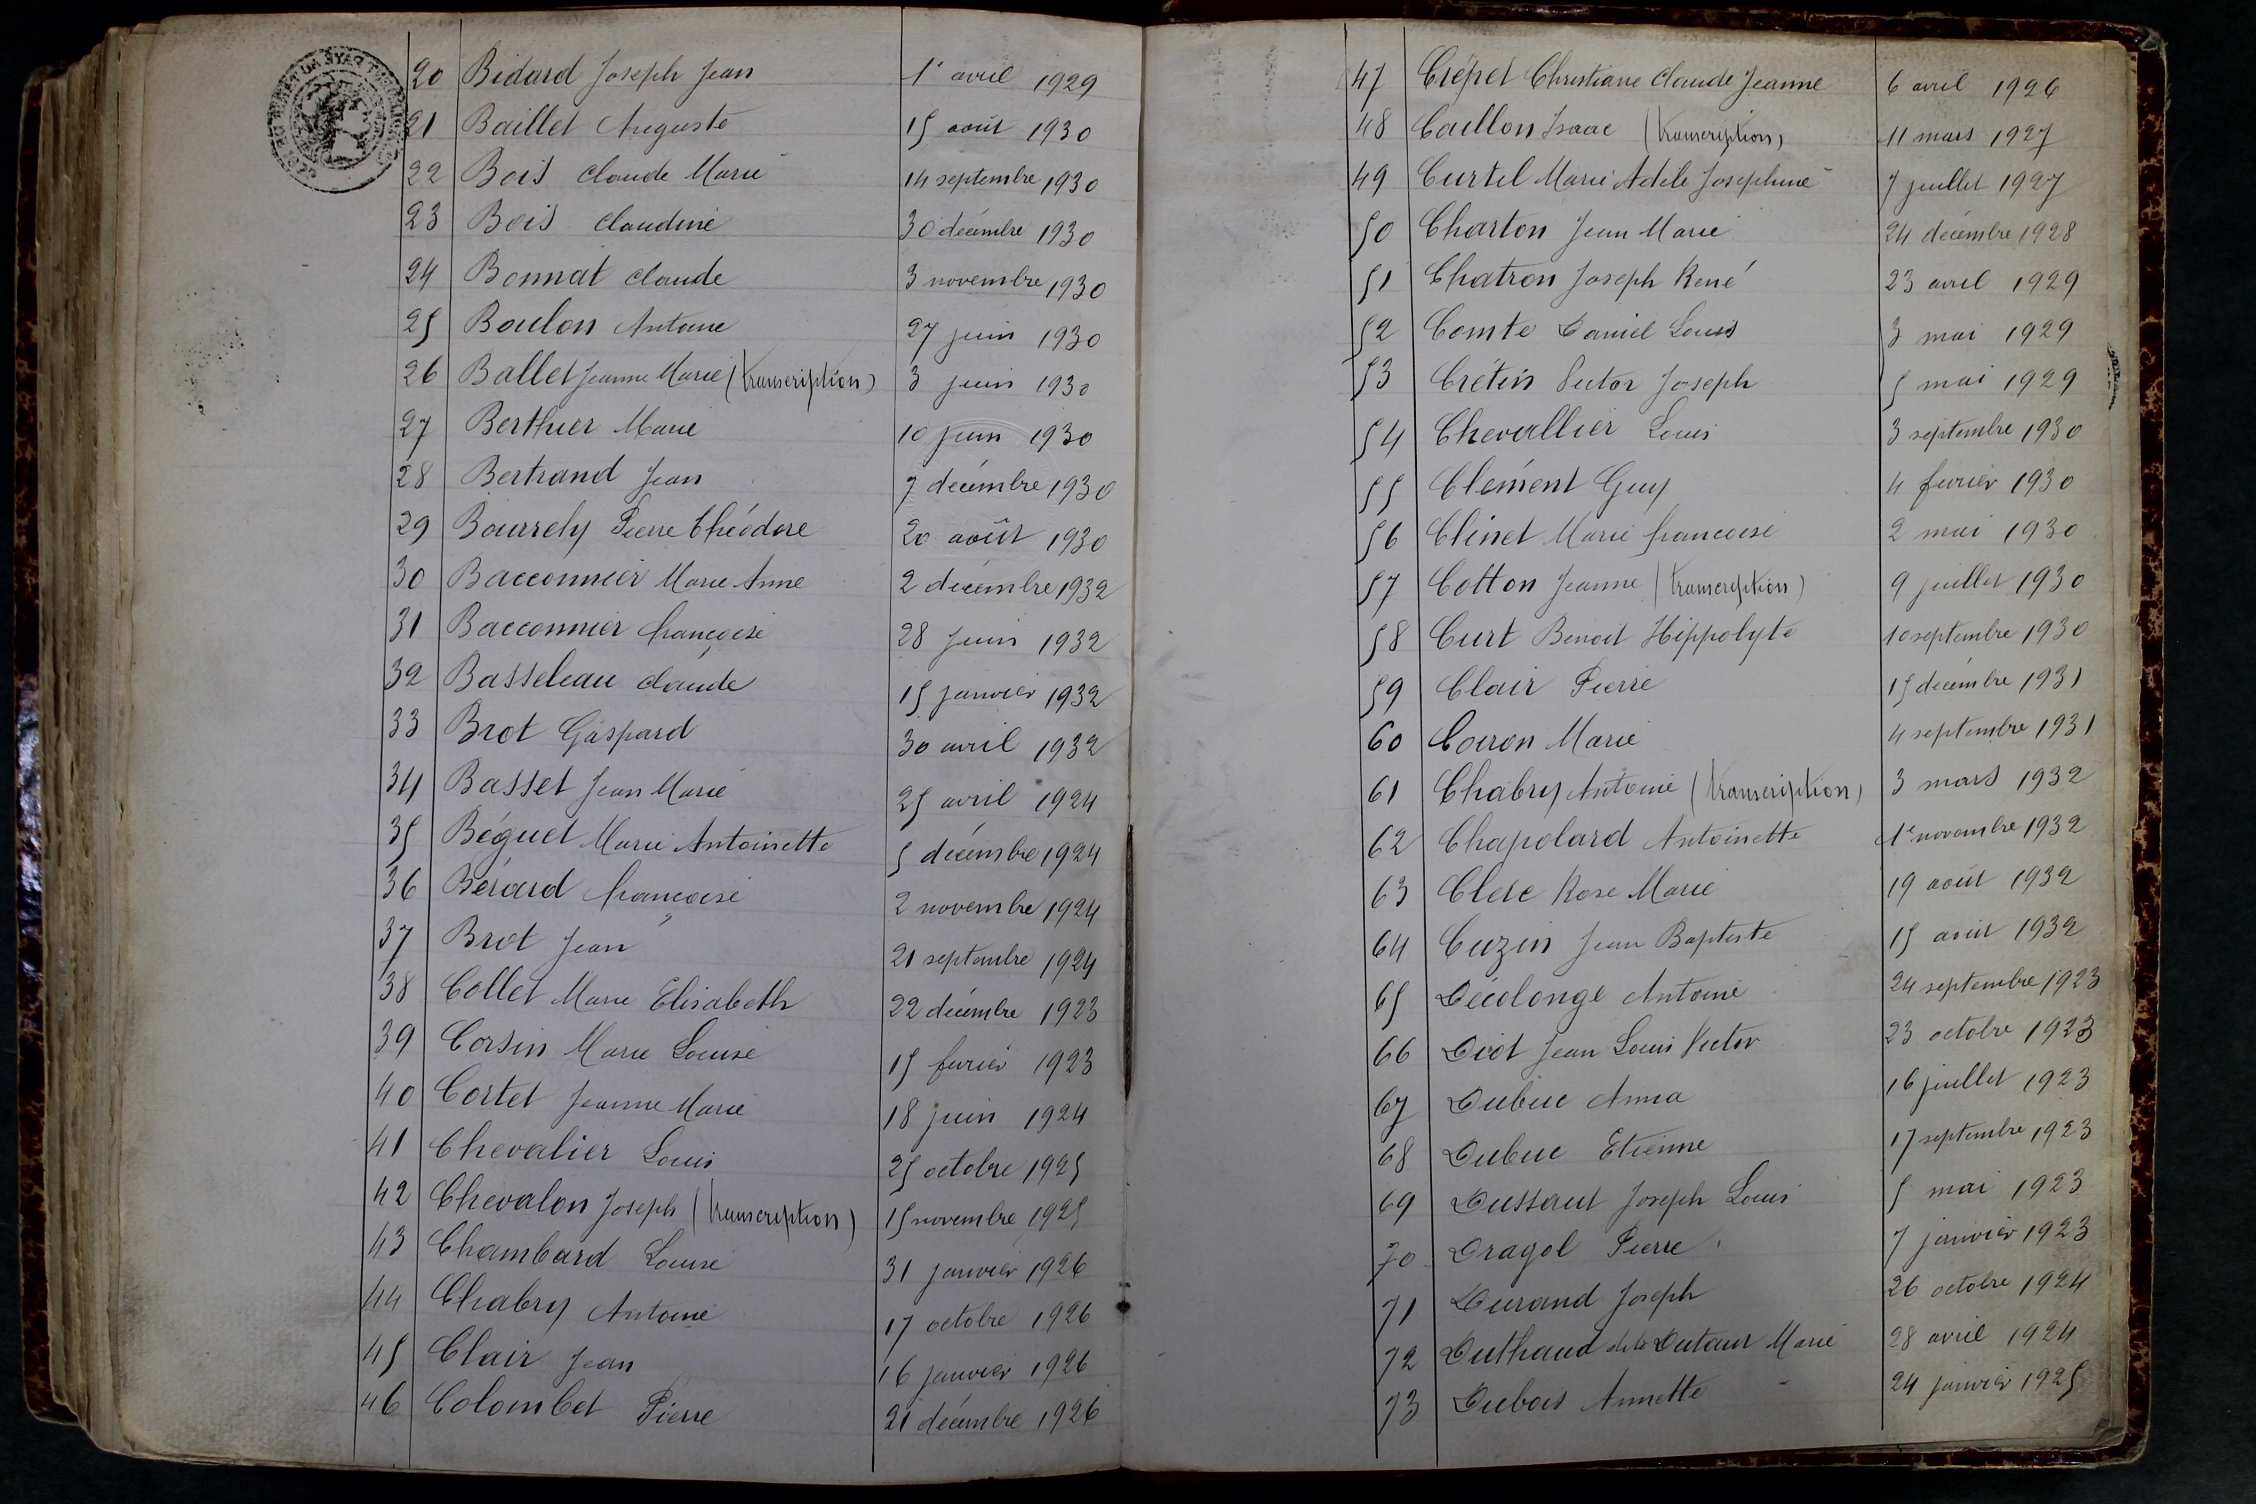 20 Bidard Joseph Jean 1er avril 1929
21 Baillet Auguste 15 août 1930
22 Bois Claude Marie 14 septembre 1930
23 Bois Claudine 30 décembre 1930
24 Bonnat Claude 3 novembre 1930
25 Boulon Antoine 27 juin 1930
26 Ballet Jeanne Marie (transcription) 3 juin 1930
27 Berthier Marie 10 juin 1930
28 Bertrand Jean 7 décembre 1930
29 Bourrely Pierre Théodore 20 août 1930
30 Bacconnier Marie Anne 2 décembre 1932
31 Bacconnier françoise 28 juin 1932
32 Basseleau claude 15 janvier 1932
33 Brot Gaspard 30 avril 1932
34 Basset Jean Marie 25 avril 1924
35 Béguet Marie Antoinette 5 décembre 1924
36 Bérard françoise 2 novembre 1924
37 Brot Jean 21 septembre 1924
38 Collet Marie Elisabeth 22 décembre 1923
39 Corsin Marie Louise 15 fevrier 1923
40 Cortet Jeanne Marie 18 juin 1924
41 Chevalier Louis 25 octobre 1925
42 Chevalon Joseph (transcription) 15 novembre 1925
43 Chambard Louise 31 janvier 1926
44 Chabry Antoine 17 octobre 1926
45 Clair Jean 16 janvier 1926
46 Colombet Pierre 21 décembre 1926
47 Crépet Christiane Claude Jeanne 6 avril 1926
48 Caillon Isaac (transcription) 11 mars 1927
49 Curtel Marie Adèle Joséphine 7 juillet 1927
50 Charton Jean Marie 24 décembre 1928
51 Chatron Joseph René 23 avril 1929
52 Comte Daniel Louis 3 mai 1929
53 Crétin Victor Joseph 5 mai 1929
54 Chevallier Louis 3 septembre 1930
55 Clément Guy 4 fevrier 1930
56 Clinet Marie françoise 2 mai 1930
57 Cotton Jeanne (transcription) 9 juillet 1930
58 Curt Benoit Hippolyte 10 septembre 1930
59 Clair Pierre 15 décembre 1931
60 Coiron Marie 4 septembre 1931
61 Chabry Antoine (transcription) 3 mars 1932
62 Chapolard Antoinette 1er novembre 1932
63 Clerc Rose Marie 19 août 1932
64 Cuzin Jean Baptiste 15 août 1932
65 Décolonge Antoine 24 septembre 1923
66 Diot Jean Louis Victor 23 octobre 1923
67 Dubuc Anna 16 juillet 1923
68 Dubuc Etienne 17 septembre 1923
69 Dussaut Joseph Louis 5 mai 1923
70 Dragol Pierre 7 janvier 1923
71 Durand Joseph 26 octobre 1924
72 Duthaud dite Dutaur Marie 28 avril 1924
73 Dubois Annette 24 janvier 1925